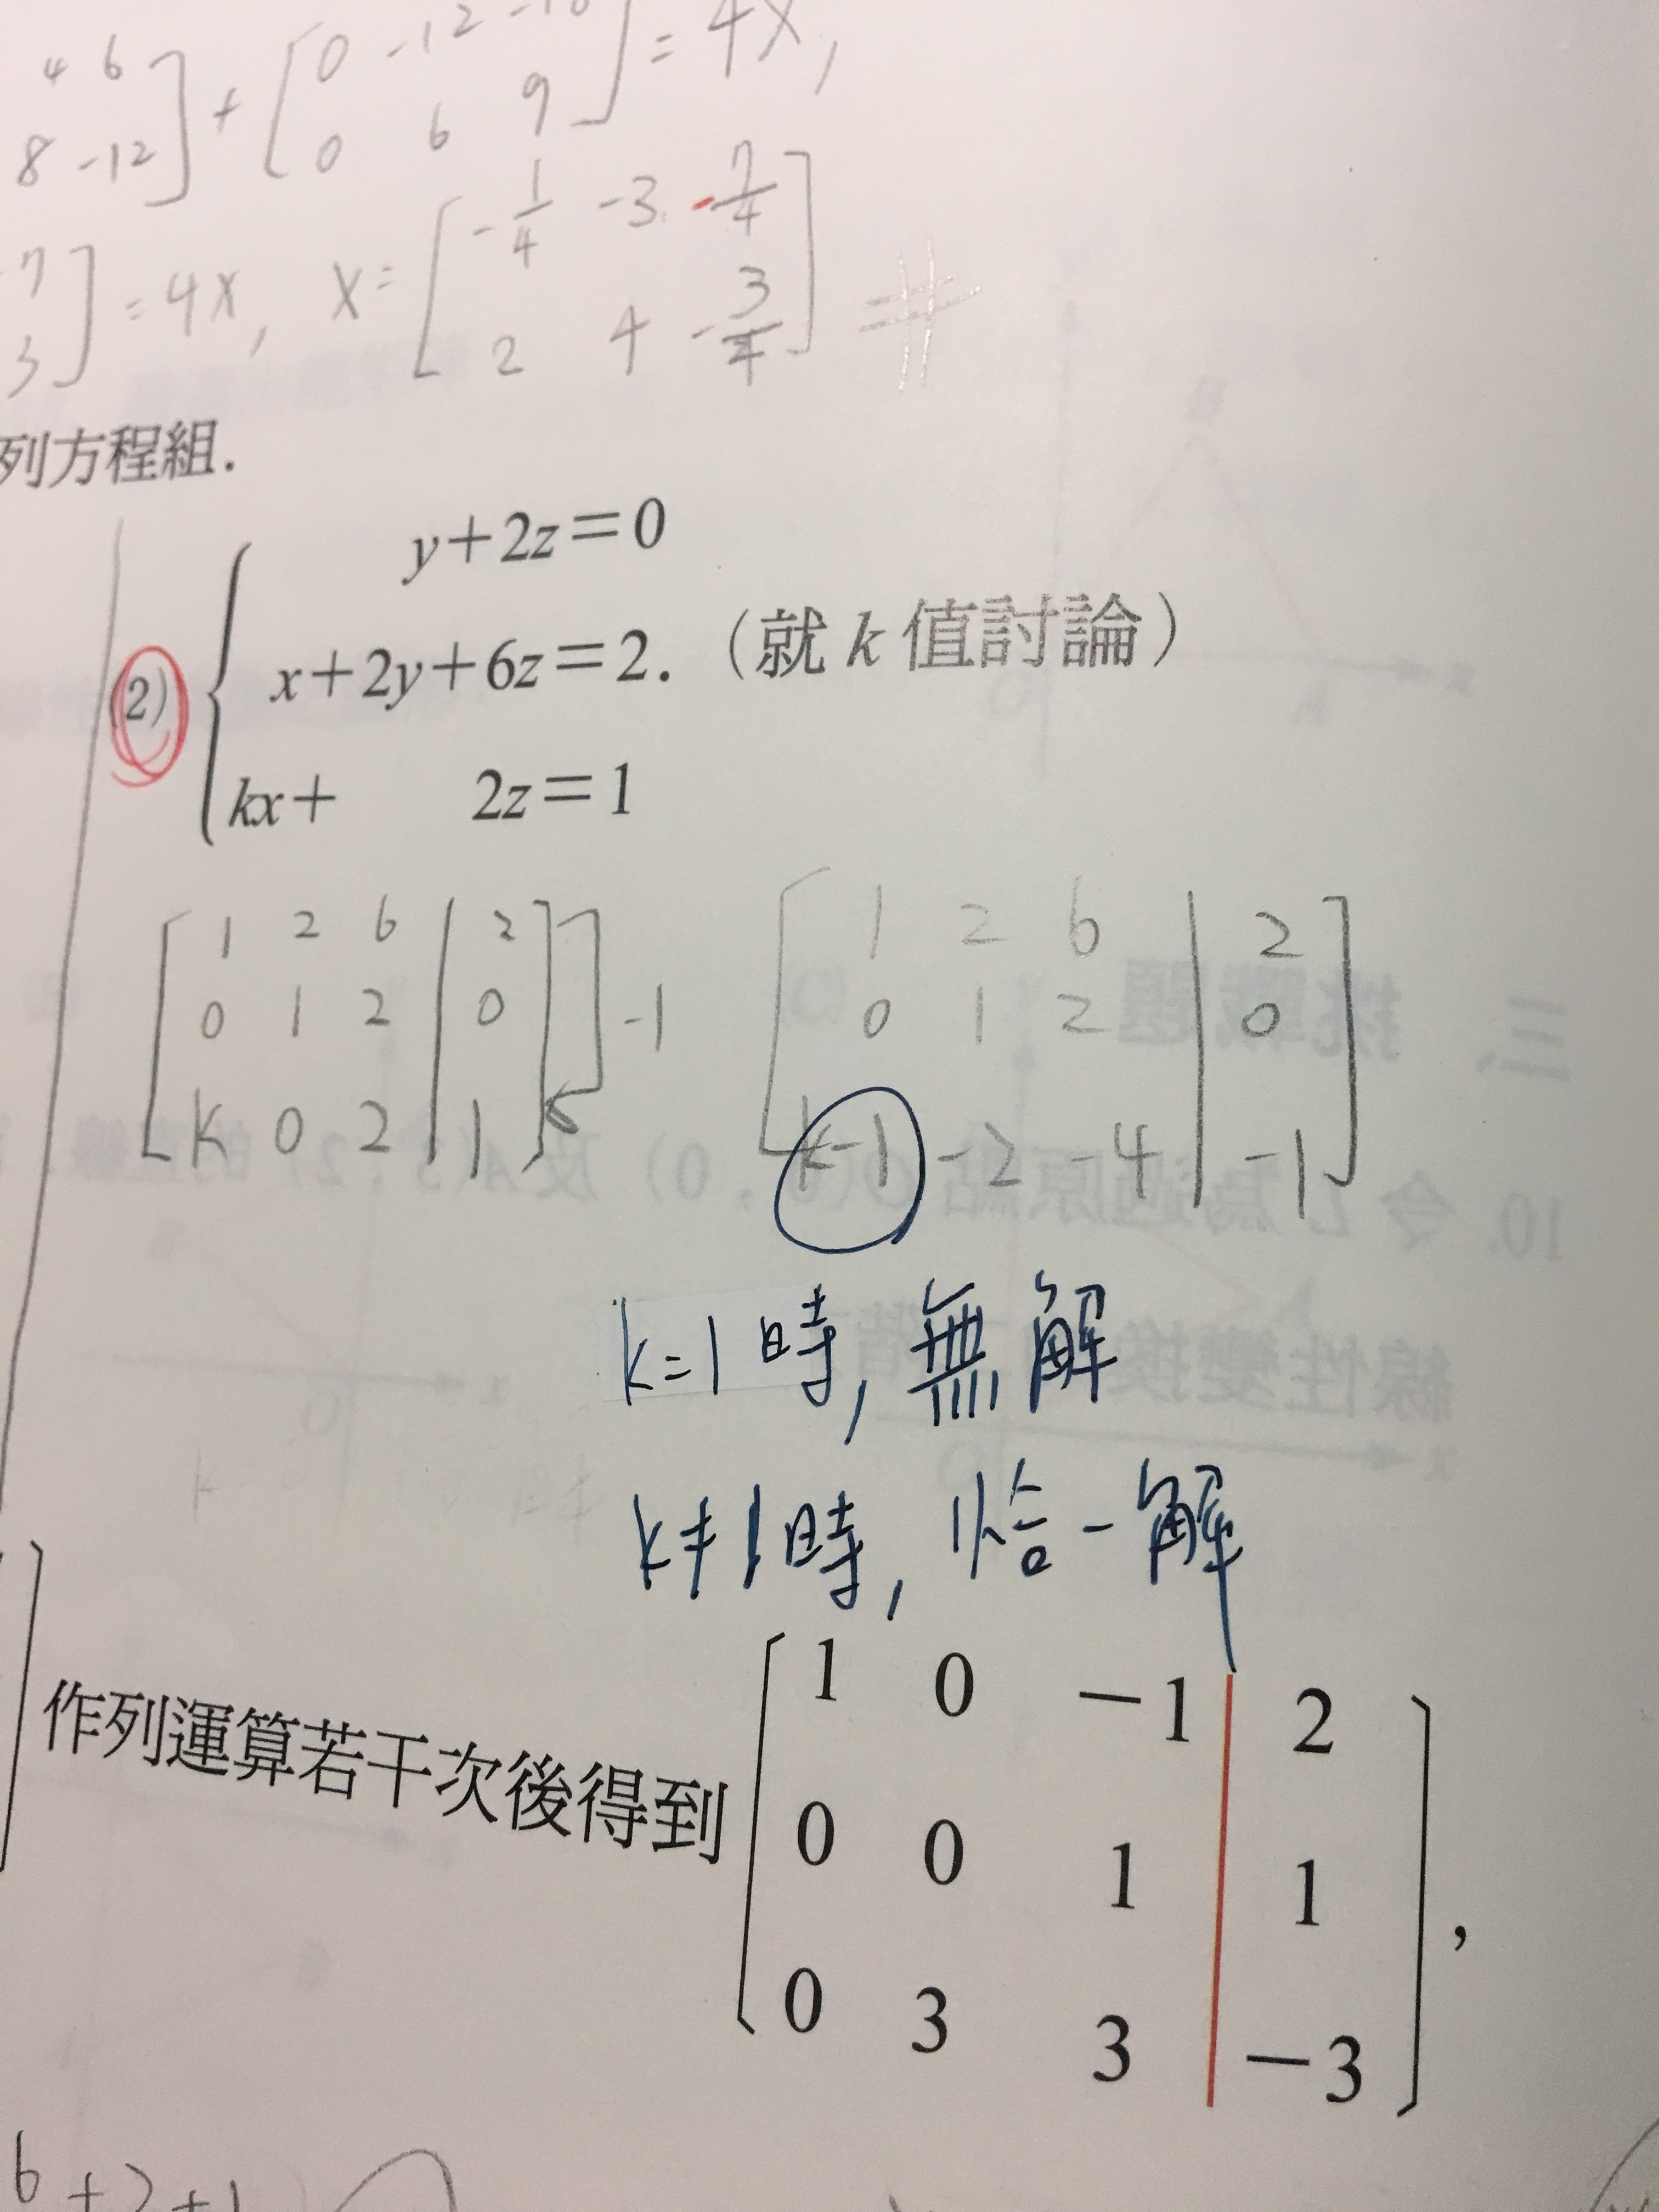 4 6 ] + [ 0 -12
8 -12 ] [ 0 6 9 ] = 4X,
7 ] = 4X, X = [ -1/4 -3 -7/4 ]
3 ] [ 2 4 -3/4 ] #
列方程組.
y+2z=0
(2) x+2y+6z=2. (就 k 值討論)
kx+ 2z=1
[ 1 2 6 | 2 ]
[ 0 1 2 | 0 ] -1
[ k 0 2 | 1 ]
[ 1 2 6 | 2 ]
[ 0 1 2 | 0 ]
[ k-1 -2 -4 | -1 ]
k=1時, 無解
k≠1時, 恰一解
] 作列運算若干次後得到 [ 1 0 -1 | 2 ]
[ 0 0 1 | 1 ]
[ 0 3 3 | -3 ] ,
6+2+1